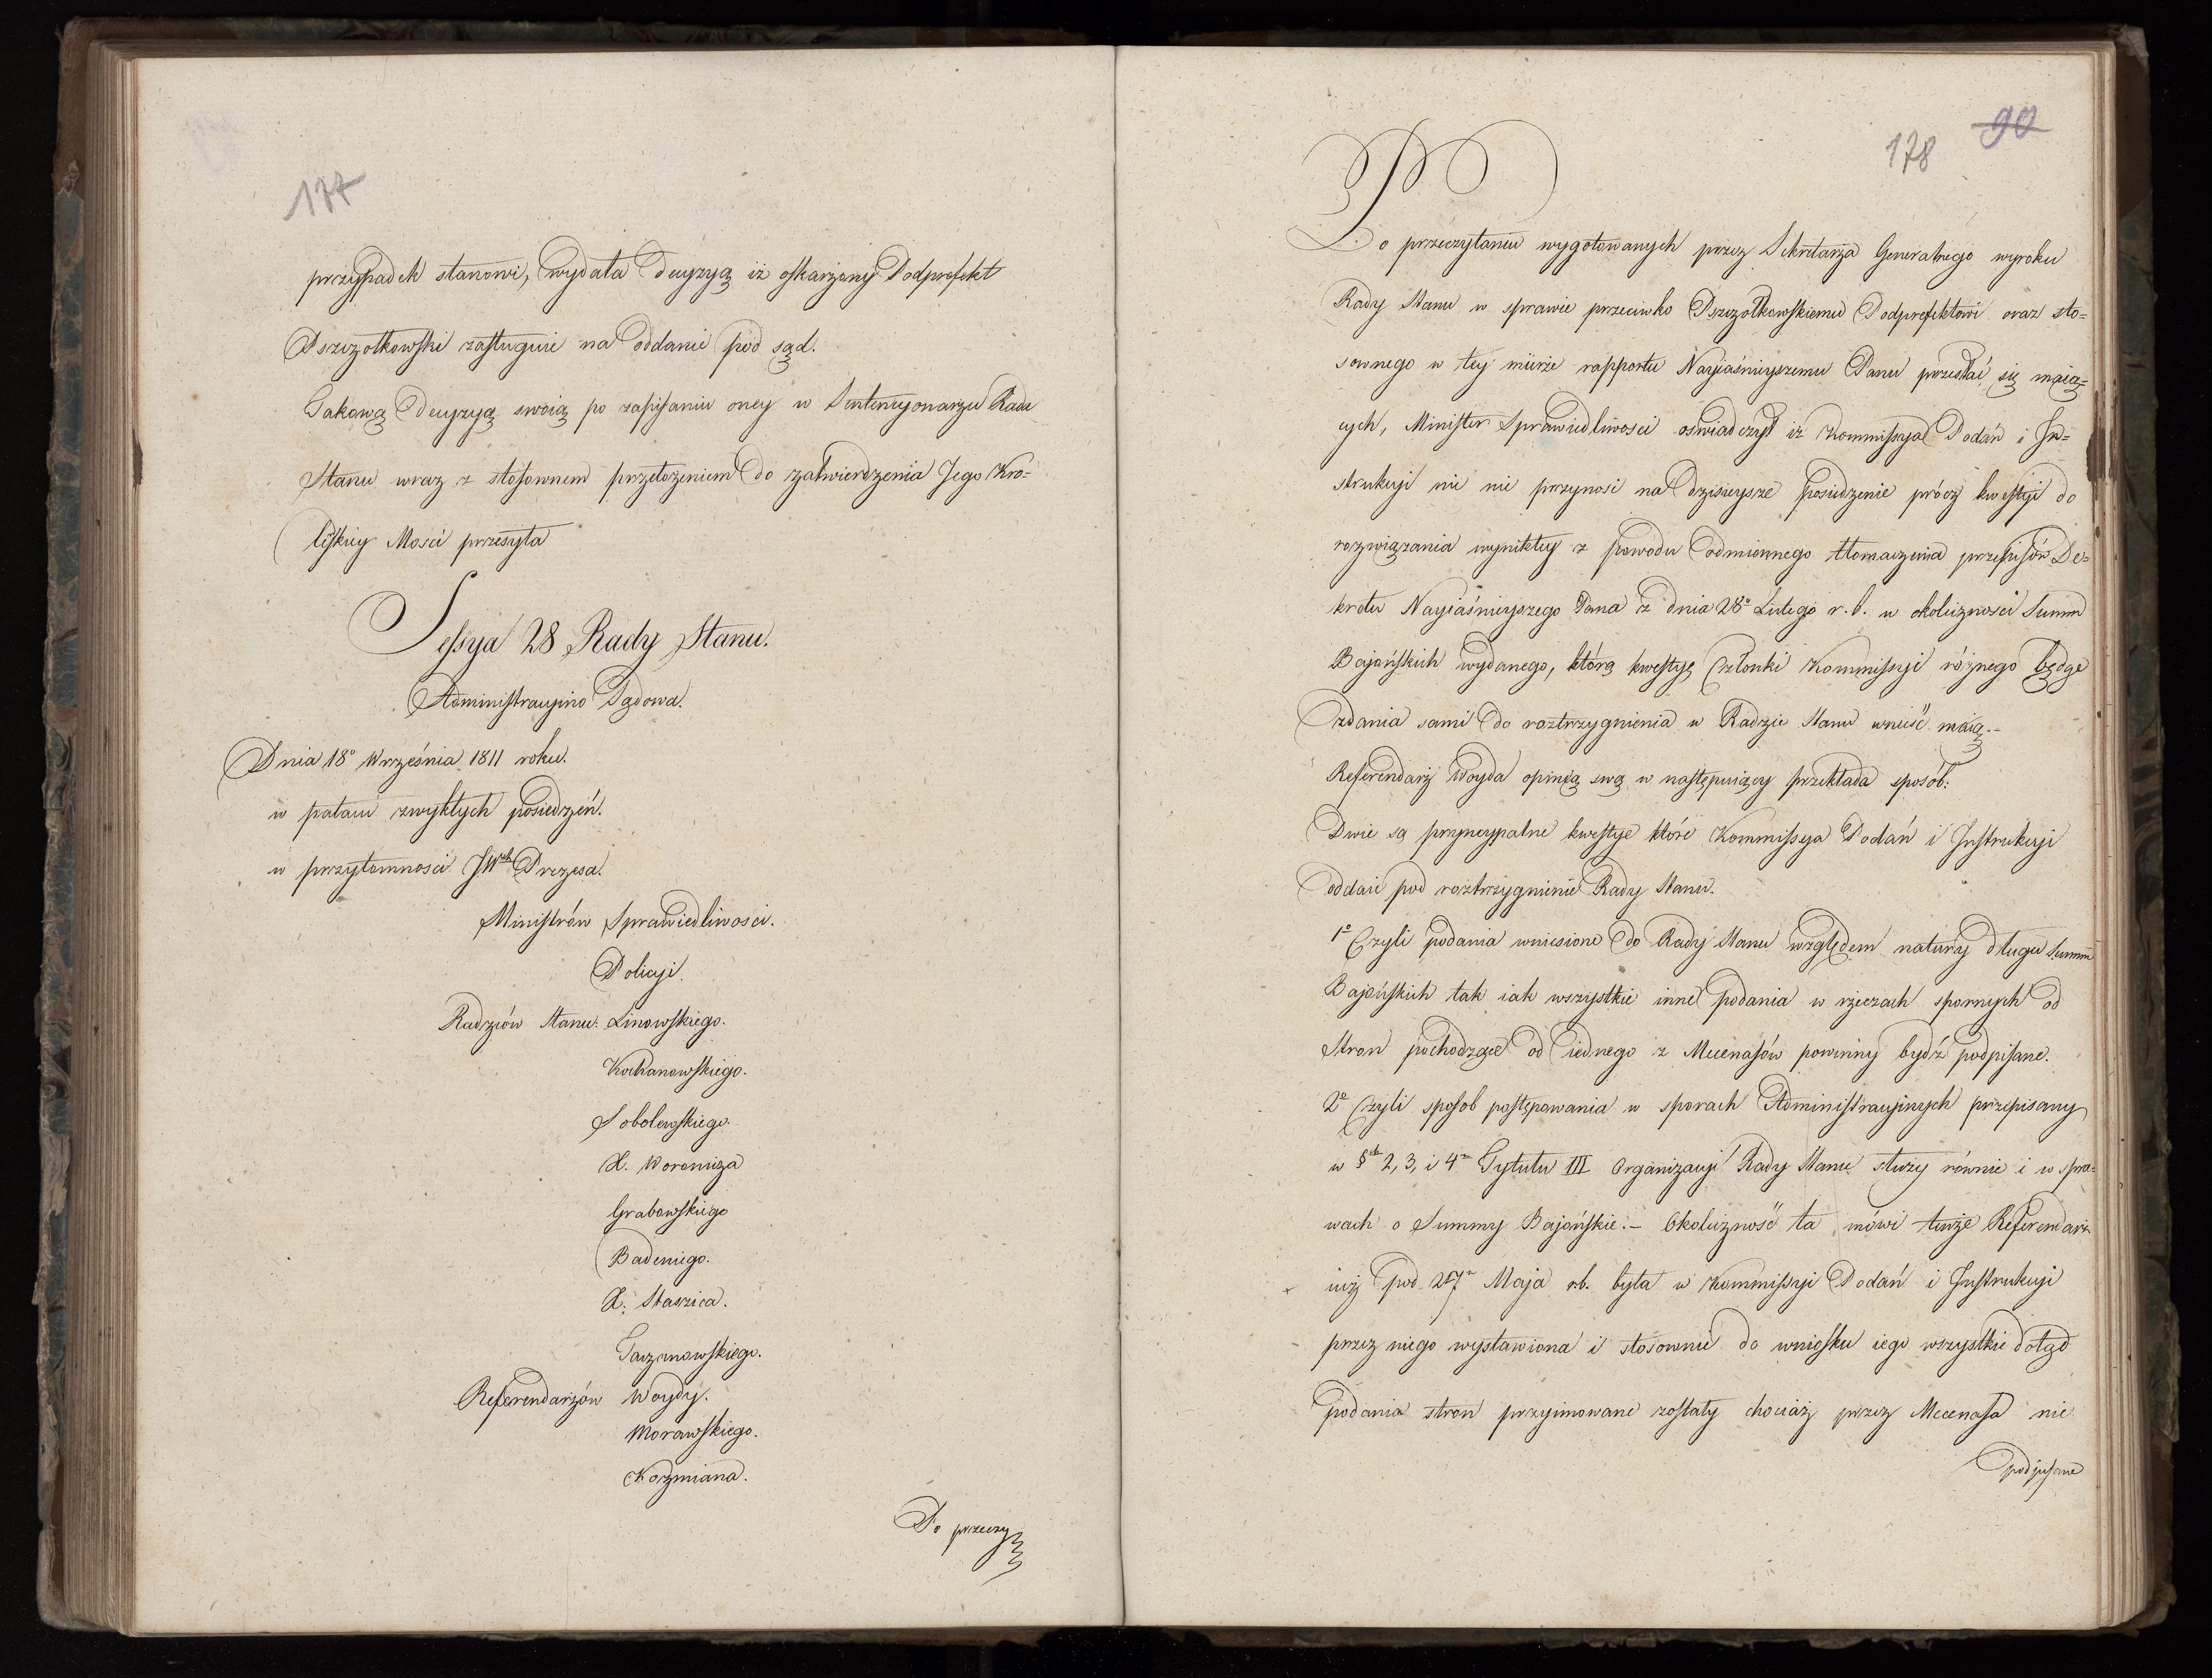 177
przypadek stanowi, wydała decyzyą iż oskarżony Podprefekt
Pszczołkowski zasługuie na oddanie pod sąd.
Takową decyzyą swoią po zapisaniu oney w Sentencyonarzu Rada
Stanu wraz z stosownem przełożeniem do zatwierdzenia Jego Kro=
lewskiey Mosci przesyła
Sessya 28 Rady Stanu.
Administracyino Sądowa.
Dnia 18º Września 1811 roku.
w pałacu zwykłych posiedzeń.
w przytomnosci JWch Prezesa.
Ministrów Sprawiedliwosci.
Policyi.
Radzców Stanu: Linowskiego.
Kochanowskiego.
Sobolewskiego.
X. Woronicza
Grabowskiego
Badeniego.
X. Staszica.
Taczanowskiego.
Referendarzów Woydy.
Morawskiego.
Kozmiana.
Po przeczy
178 90
Po przeczytaniu wygotowanych przez Sekretarza Generalnego wyroku
Rady Stanu w sprawie przeciwko Pszczołkowskiemu Podprefektowi oraz sto=
sownego w tey mierze rapportu Nayiaśnieyszemu Panu przesłać się maią=
cych, Minister Sprawiedliwosci oświadczył iż Kommissya Podań i In=
strukcyi nic nie przynosi na dzisieysze posiedzenie prócz kwestyi do
rozwiązania wynikłey z powodu odmiennego tłomaczenia przepisów De=
kretu Nayiaśnieyszego Pana z dnia 28º Lutego r. b. w okoliczności Summ
Bajońskich wydanego, którą kwestyę członki Kommissyi różnego będąc
zdania sami do roztrzygnienia w Radzie Stanu wnieść maią.-
Referendarz Woyda opinią swą w następuiący przekłada sposób:
Dwie są pryncypalne kwestye które Kommissya Podań i Instrukcyi
oddaie pod roztrzygnienie Rady Stanu.
1º Czyli podania wniesione do Rady Stanu względem natury długu Summ
Bajońskich tak iak wszystkie inne podania w rzeczach spornych od
Stron pochodzące od iednego z Mecenasów powinny bydź podpisane.
2º Czyli sposob postępowania w sporach Administracyinych przepisany
w §ch 2, 3, i 4m Tytułu III Organizacyi Rady Stanu służy równie i w spra=
wach o Summy Bajońskie:- Okoliczność ta mówi tenże Referendarz
iuż pod 27m Maja rb. była w Kommissyi Podań i Instrukcyi
przez niego wystawiona i stosownie do wniosku iego wszystkie dotąd
podania stron przyimowane zostały chociaż przez Mecenasa nie
podpisane